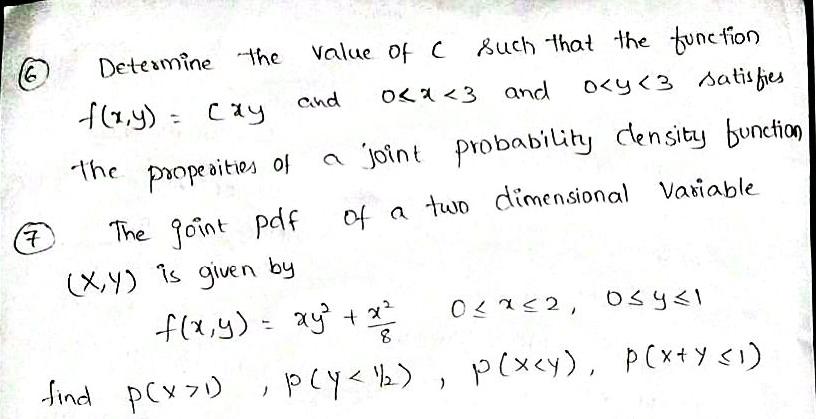 ⑥ Determine the value of C such that the function
f(x,y) = Cxy and 0<x<3 and 0<y<3 satisfies
the properities of a joint probability density function
⑦ The joint pdf of a two dimensional Variable
(X,Y) is given by
f(x,y) = xy² + x²/8 0 ≤ x ≤ 2, 0 ≤ y ≤ 1
find p(x>1), p(y<1/2), p(x<y), p(x+y ≤ 1)